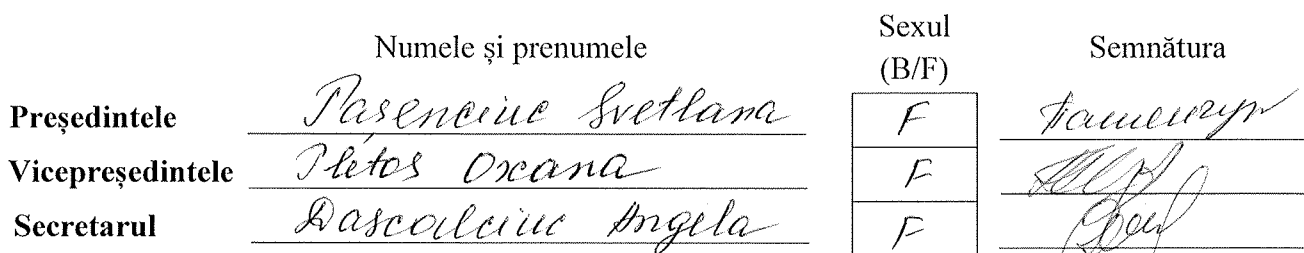 Numele și prenumele Sexul (B/F) Semnătura
Președintele Pasenciuc Svetlana F
Vicepreședintele Pletos Oxana F
Secretarul Dascalciuc Angela F